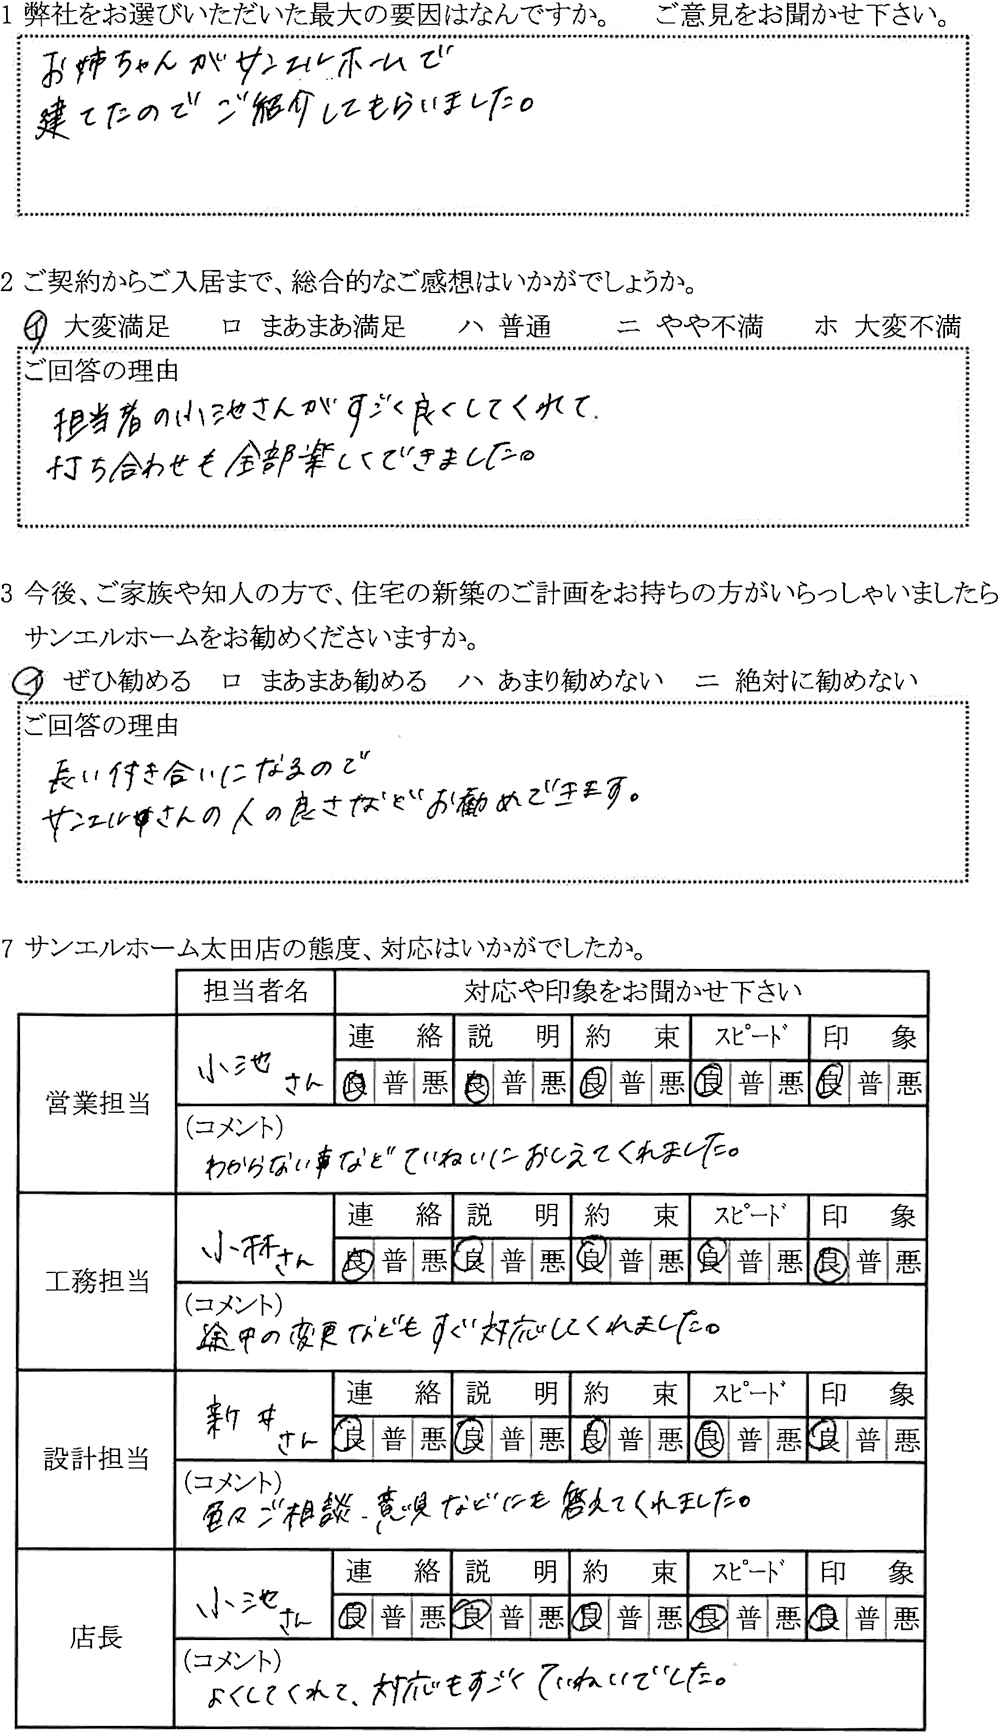 1 弊社をお選びいただいた最大の要因はなんですか。　ご意見をお聞かせ下さい。
お姉ちゃんがサンエルホームで
建てたのでご紹介してもらいました。
2 ご契約からご入居まで、総合的なご感想はいかがでしょうか。
イ 大変満足　ロ まあまあ満足　ハ 普通　ニ やや不満　ホ 大変不満
ご回答の理由
担当者の小池さんがすごく良くしてくれて、
打ち合わせも全部楽しくできました。
3 今後、ご家族や知人の方で、住宅の新築のご計画をお持ちの方がいらっしゃいましたら
サンエルホームをお勧めくださいますか。
イ ぜひ勧める　ロ まあまあ勧める　ハ あまり勧めない　ニ 絶対に勧めない
ご回答の理由
長い付き合いになるので
サンエルさんの人の良さなどお勧めできます。
7 サンエルホーム太田店の態度、対応はいかがでしたか。
担当者名　対応や印象をお聞かせ下さい
営業担当　小池さん　連絡　説明　約束　スピード　印象
良 普 悪　良 普 悪　良 普 悪　良 普 悪　良 普 悪
(コメント)
わからない事などていねいにおしえてくれました。
工務担当　小林さん　連絡　説明　約束　スピード　印象
良 普 悪　良 普 悪　良 普 悪　良 普 悪　良 普 悪
(コメント)
途中の変更などもすぐ対応してくれました。
設計担当　新井さん　連絡　説明　約束　スピード　印象
良 普 悪　良 普 悪　良 普 悪　良 普 悪　良 普 悪
(コメント)
色々ご相談、意見などにも答えてくれました。
店長　小池さん　連絡　説明　約束　スピード　印象
良 普 悪　良 普 悪　良 普 悪　良 普 悪　良 普 悪
(コメント)
よくしてくれて、対応もすごくていねいでした。